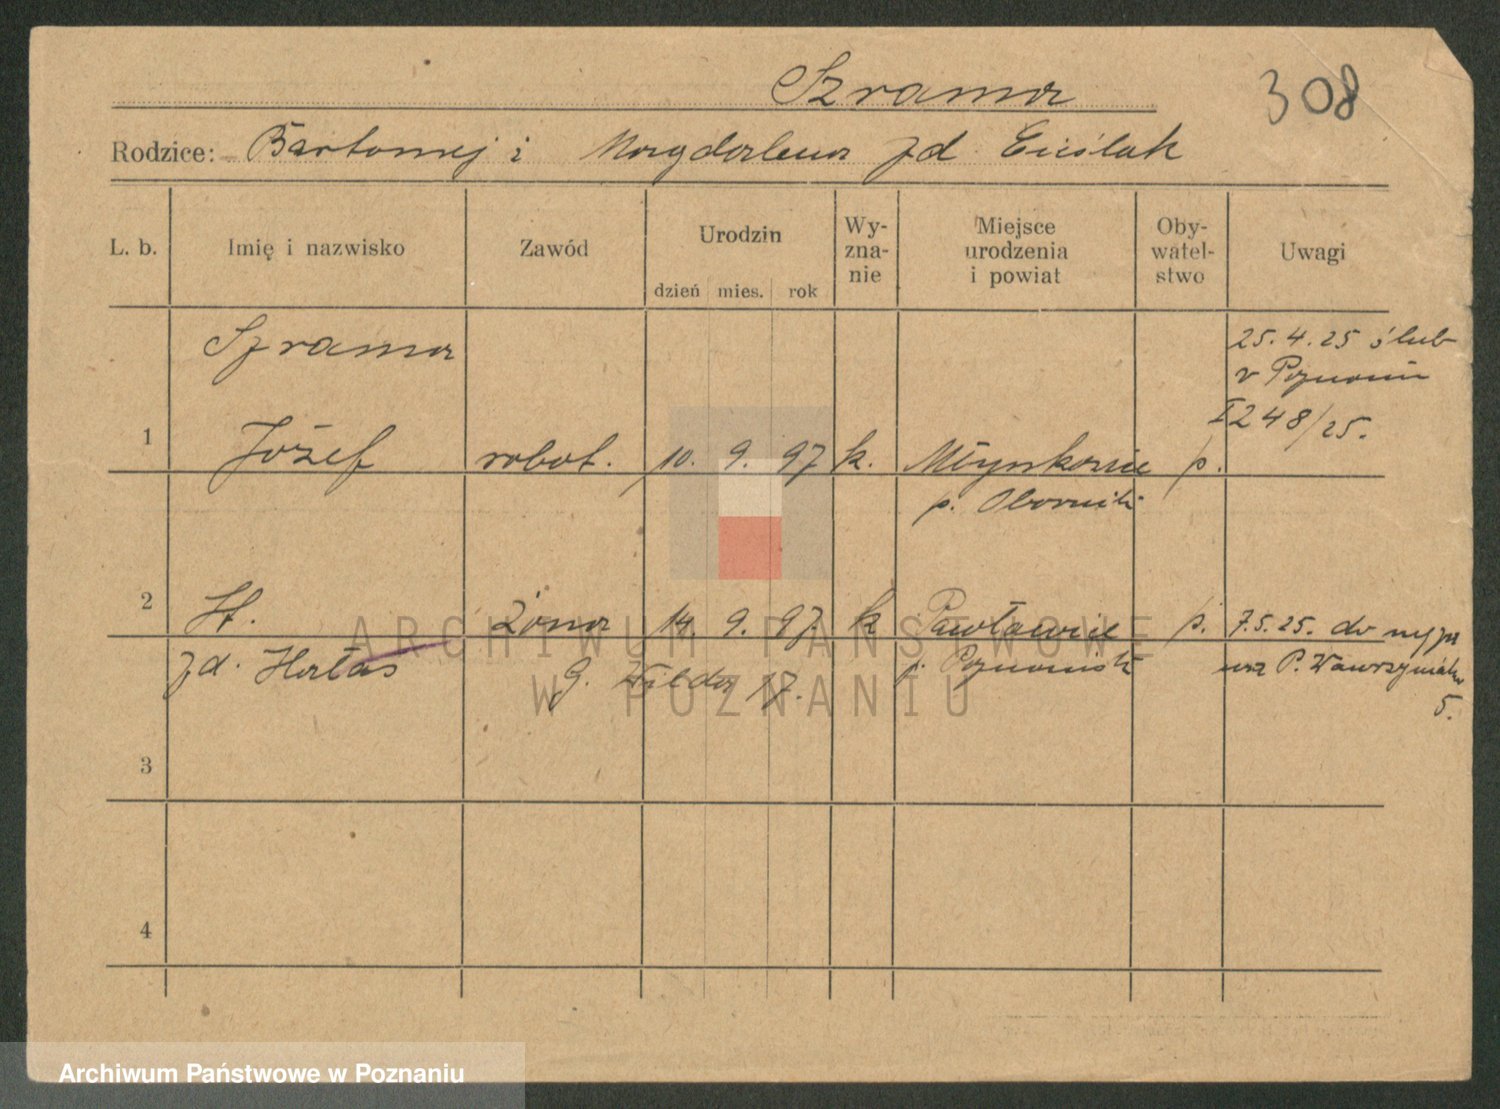 Szrama
308
Rodzice: Bartomiej i Magdalena zd Cieślak
L. b.
Imię i nazwisko
Zawód
Urodzin
dzień mies. rok
Wy-
zna-
nie
Miejsce
urodzenia
i powiat
Oby-
watel-
stwo
Uwagi
Szrama
25.4.25 ślub
v Poznaniu
I 248/25.
1
Józef robot. 10. 9. 97 k. Młynkowie p.
p. Oborniki
2
St. Żona 14. 9. 97 k Pawłowice p. 7.5.25. do
zd. Hałas G. Wilda 17. p. Poznański P. Wawrzyniaka
5.
3
4
ARCHIWUM PAŃSTWOWE
W POZNANIU
Archiwum Państwowe w Poznaniu